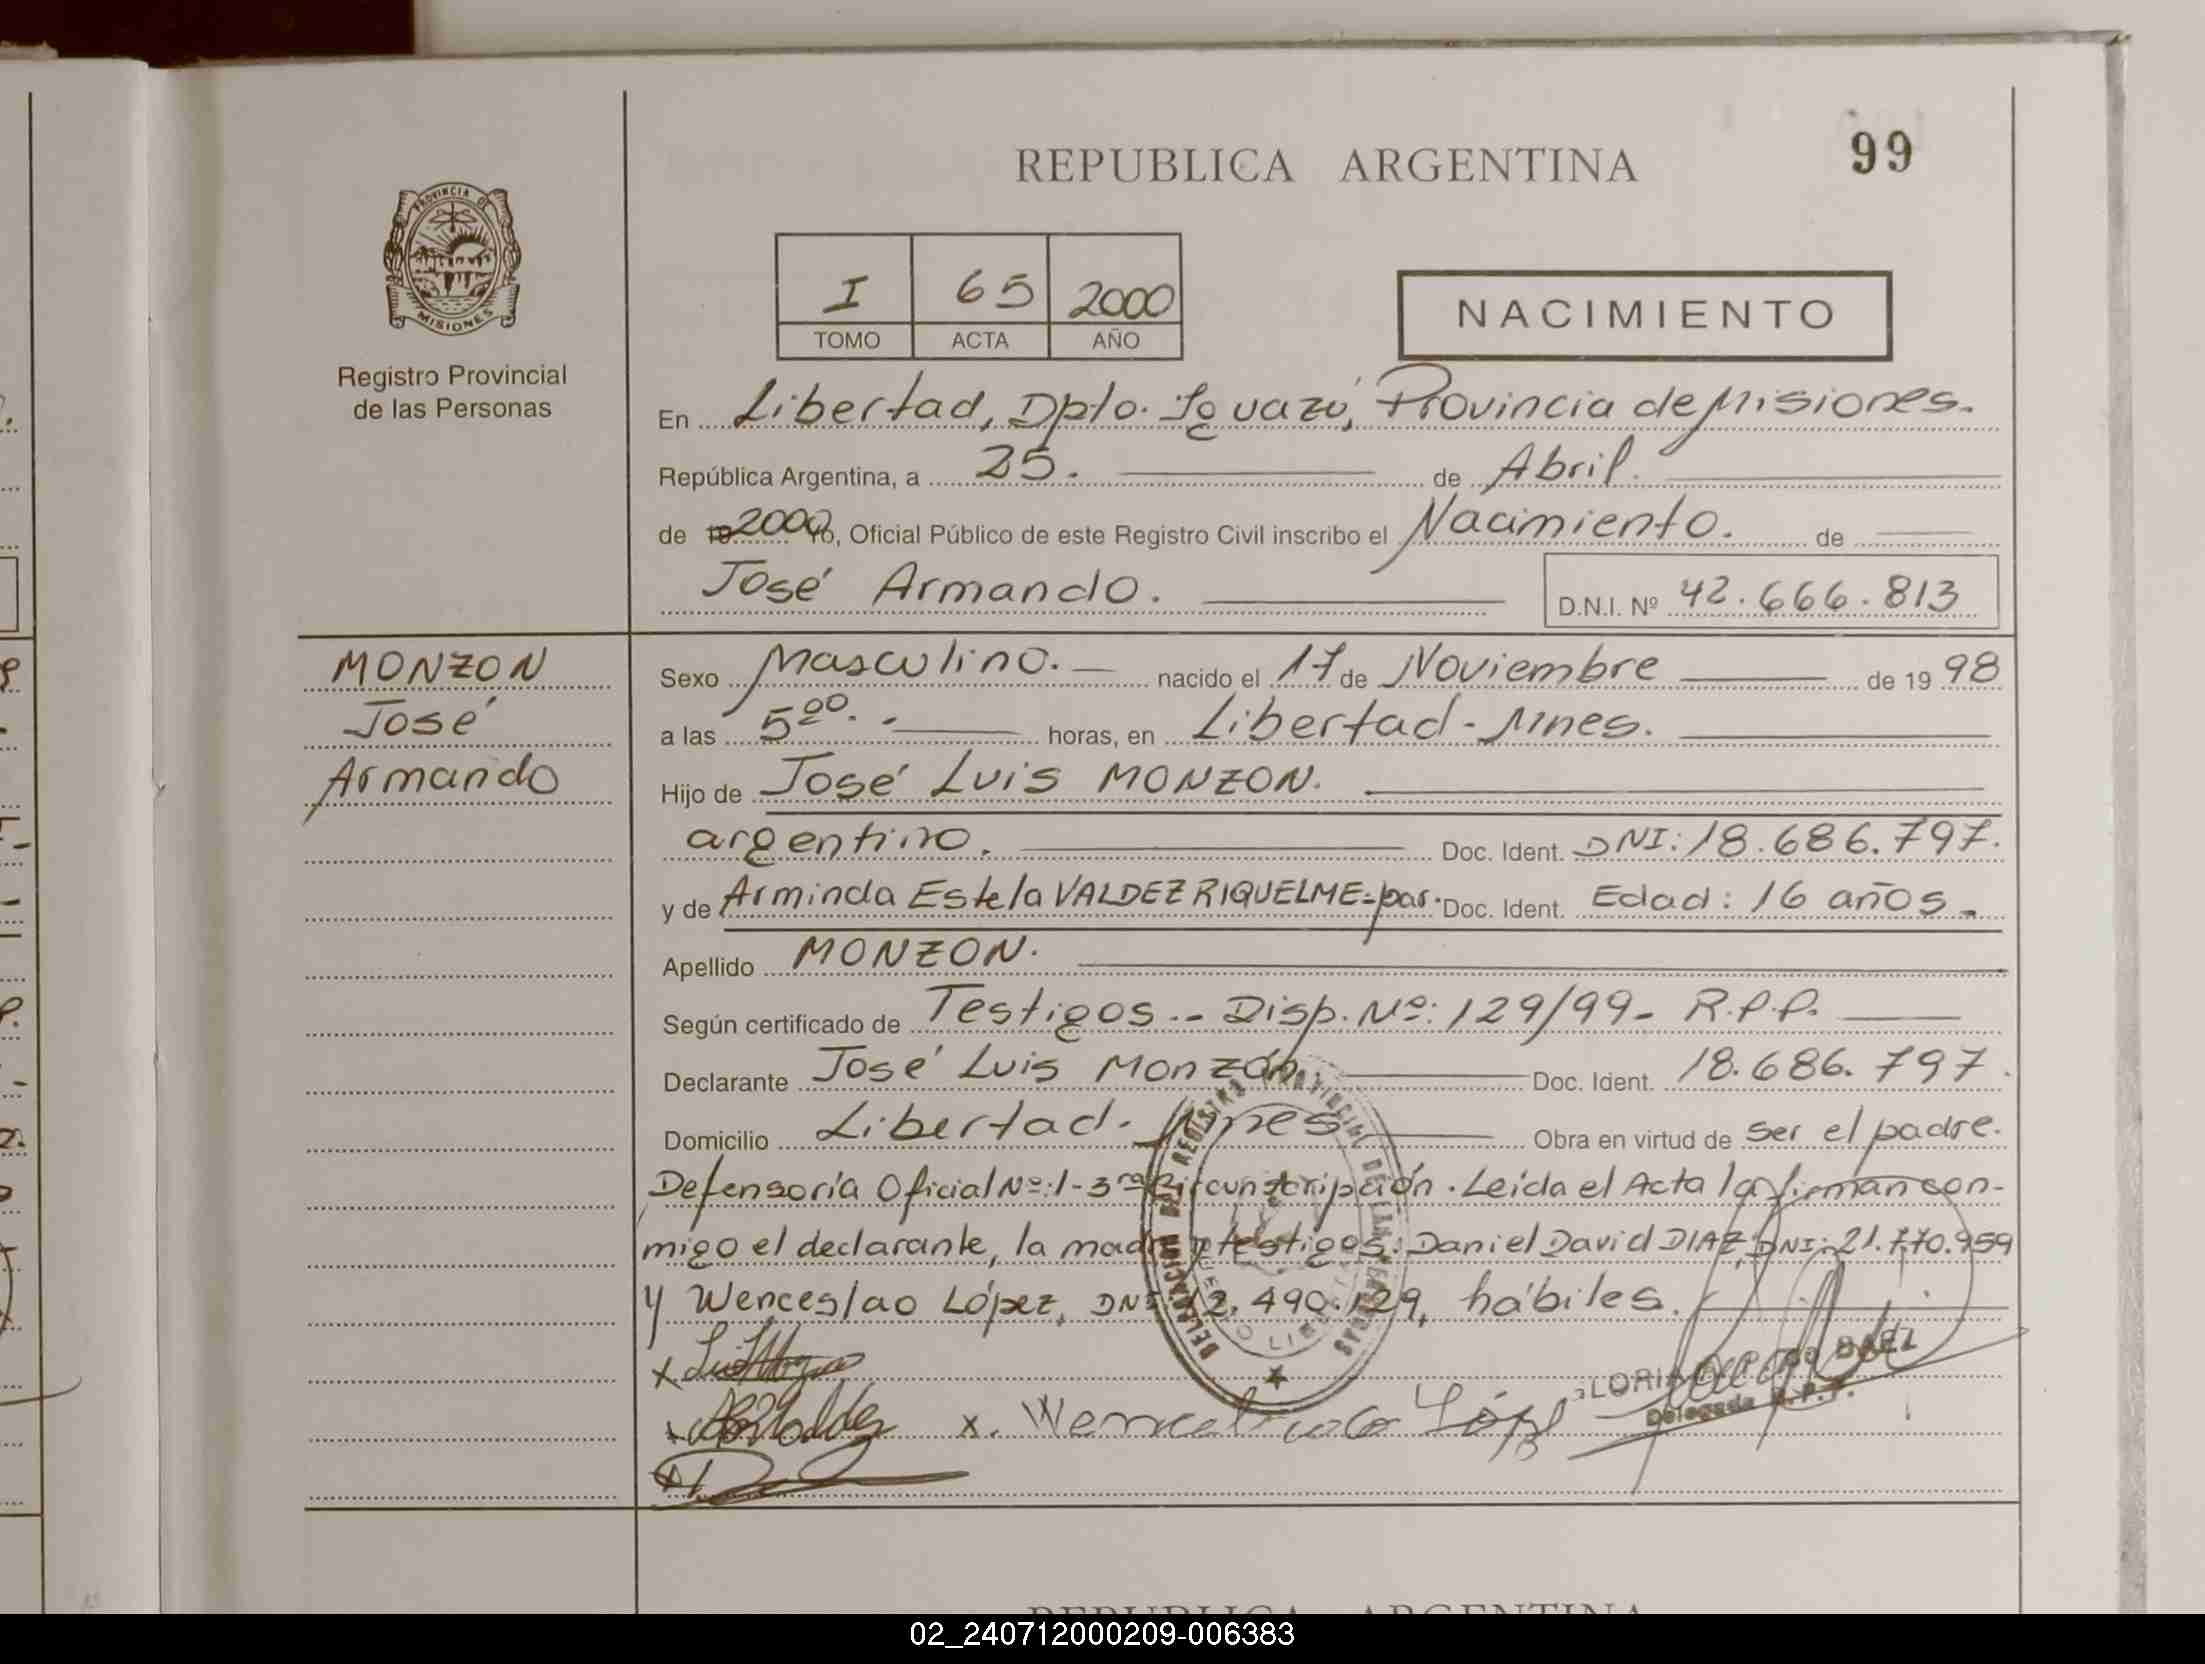 REPUBLICA ARGENTINA
99
PROVINCIA DE
MISIONES
Registro Provincial
de las Personas
I 65 2000
TOMO ACTA AÑO
NACIMIENTO
En Libertad, Dpto. Iguazú, Provincia de Misiones.
República Argentina, a 25. de Abril.
de 19 2000 Yo, Oficial Público de este Registro Civil inscribo el Nacimiento. de
José Armando. D.N.I. Nº 42.666.813
MONZON
José
Armando
Sexo Masculino. nacido el 17 de Noviembre de 19 98
a las 5 00. horas, en Libertad - Mnes.
Hijo de José Luis MONZON.
argentino. Doc. Ident. DNI: 18.686.797.
y de Arminda Estela VALDEZ RIQUELME - par. Doc. Ident. Edad: 16 años.
Apellido MONZON.
Según certificado de Testigos.- Disp. Nº: 129/99 - R.P.P.
Declarante José Luis Monzón. Doc. Ident. 18.686.797.
Domicilio Libertad. Mnes Obra en virtud de ser el padre.
Defensoría Oficial Nº: 1 - 3ra Circunscripción. Leída el Acta la firman con-
migo el declarante, la madre y testigos: Daniel David DIAZ, DNI: 21.770.959
y Wenceslao López, DNI: 12.490.129, hábiles.
x
x x. Wenceslao López
x
BAEZ
Delegada R.P.P.
DELEGACION DEL REGISTRO PROVINCIAL DE LAS PERSONAS
REPUBLICA ARGENTINA
02_240712000209-006383